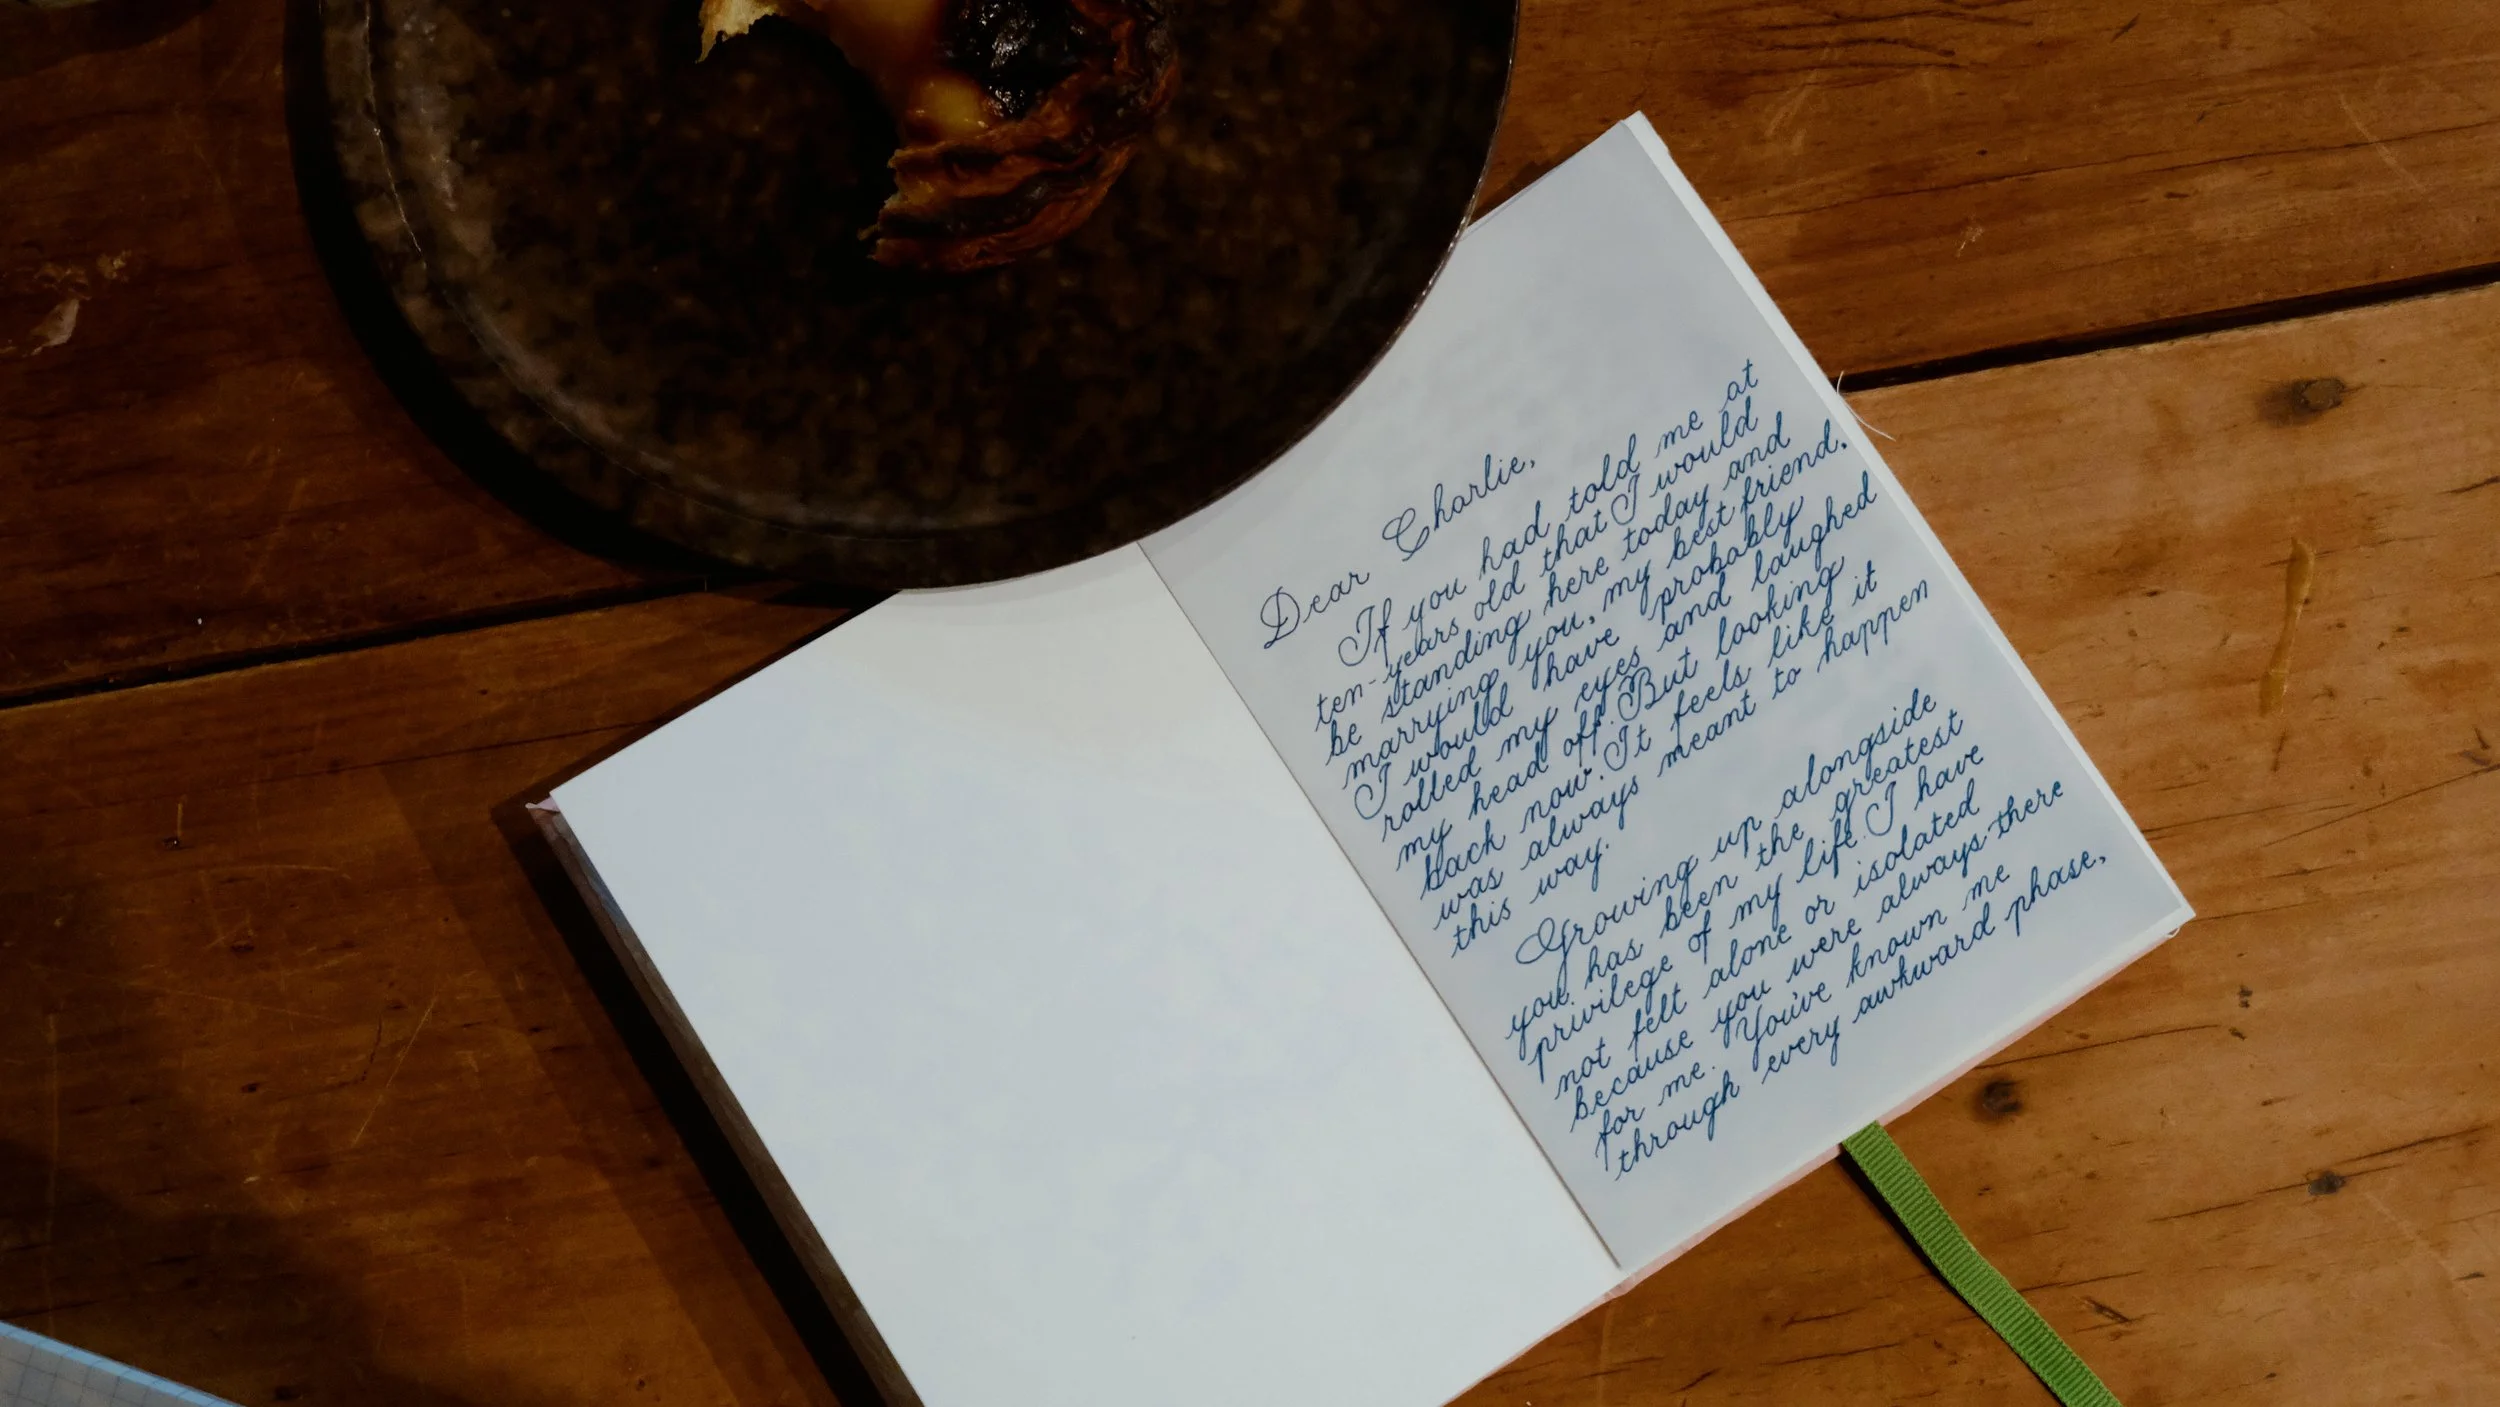 Dear Charlie,
If you had told me at
ten-years old that I would
be standing here today and
marrying you, my best friend,
I would have probably
rolled my eyes and laughed
my head off. But looking
back now. It feels like it
was always meant to happen
this way.
Growing up alongside
you has been the greatest
privilege of my life. I have
not felt alone or isolated
because you were always there
for me. You've known me
through every awkward phase,